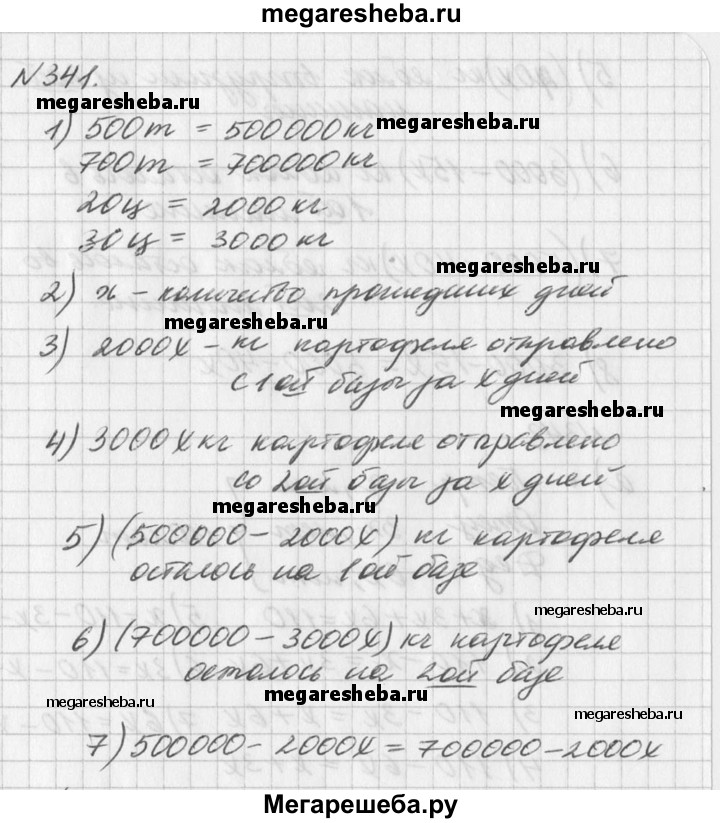 megaresheba.ru
N341.
megaresheba.ru
1) 500т = 500000кг
megaresheba.ru
700т = 700000кг
20ц = 2000кг
30ц = 3000кг
megaresheba.ru
2) x – количество прошедших дней
megaresheba.ru
3) 2000x – кг картофеля отправлено
с 1ой базы за x дней
megaresheba.ru
4) 3000x кг картофеле отправлено
со 2ой базы за x дней
megaresheba.ru
5) (500000 – 2000x) кг картофеля
осталось на 1ой базе
megaresheba.ru
6) (700000 – 3000x) кг картофеле
осталось на 2ой базе
megaresheba.ru
megaresheba.ru
megaresheba.ru
7) 500000 – 2000x = 700000 – 2000x
Мегарешеба.ру